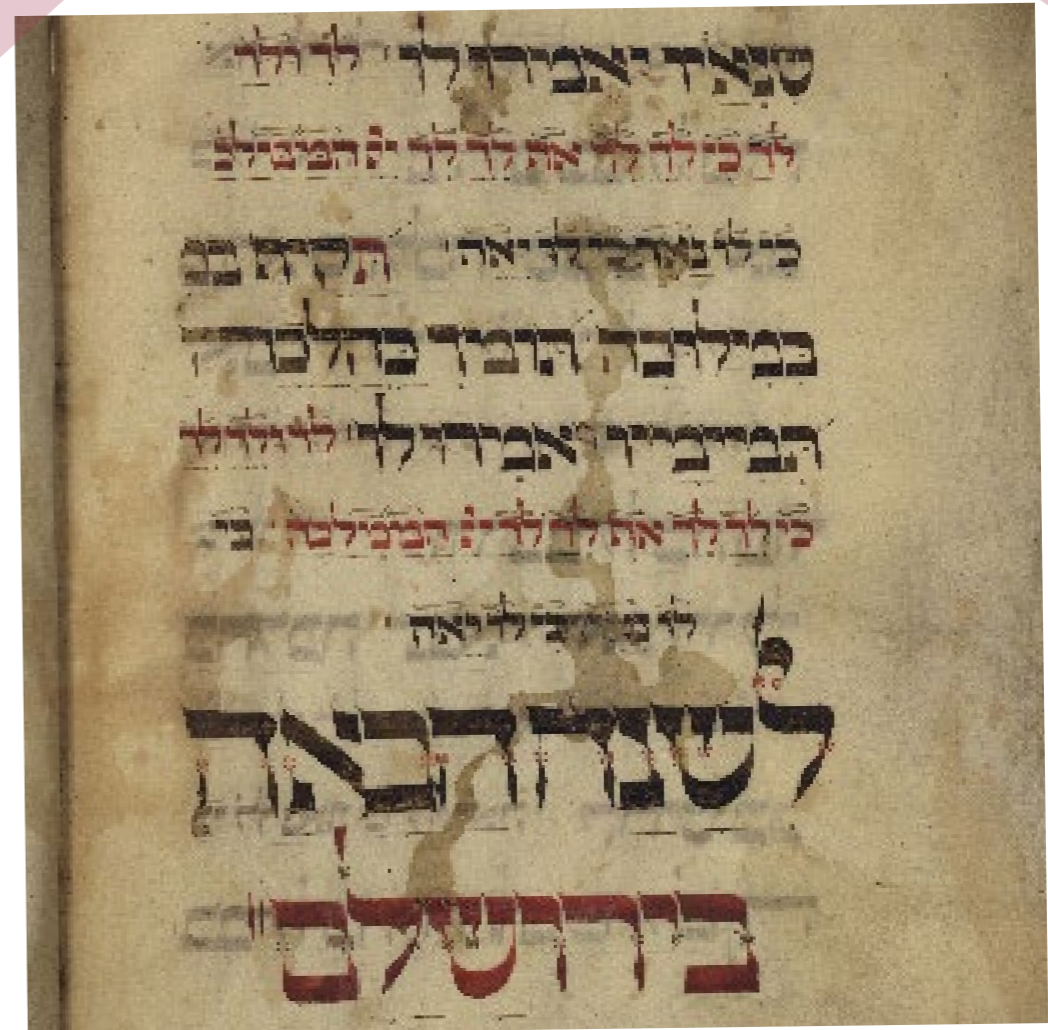 יאמירו לך : לך ולך
לך כי לך לך אף לך לך יי
כי לו נאה כי לו יאה : תקיף
במילוכה תומך כהלכה
יאמירו לך : לך ולך לך
כי לך לך אף לך לך יי הממילכה : כי
לו נאה כי לו יאה :
לשנה הבאה
בירושלם